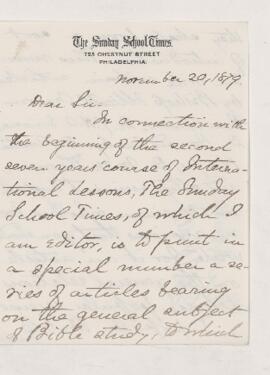 The Sunday School Times.
725 CHESTNUT STREET
PHILADELPHIA.
November 20, 1879.
Dear Sir:
In connection with
the beginning of the second
seven years' course of Interna-
tional Lessons, The Sunday
School Times, of which I
am editor, is to print in
a special number a se-
ries of articles bearing
on the general subject
of Bible study, to which